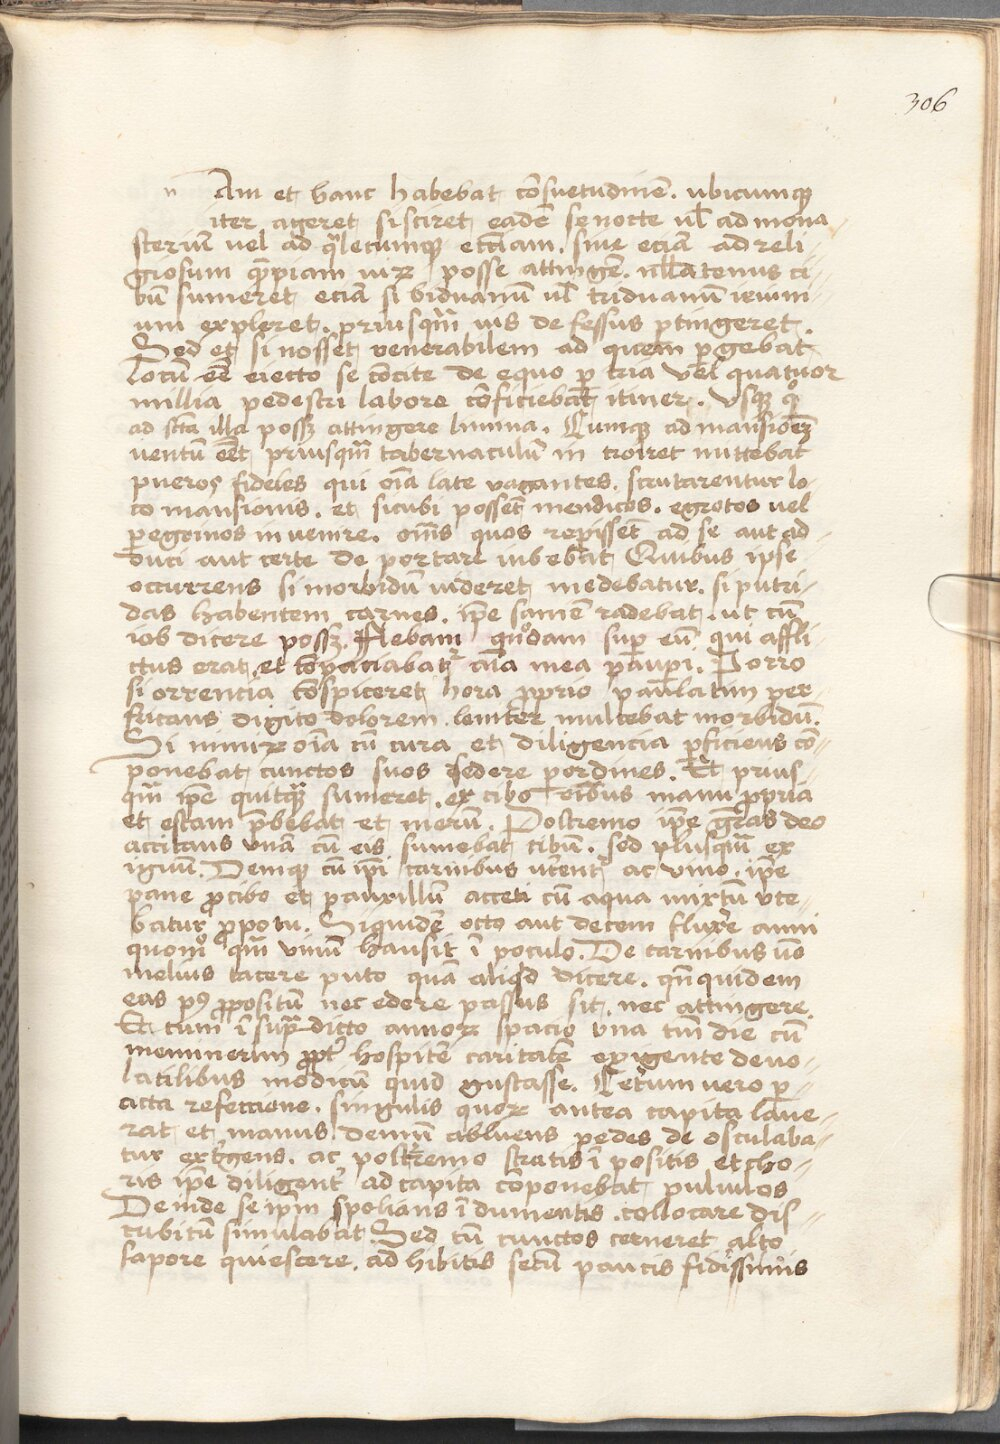 306
n Am et hanc habebat cōsuetudinē . ubicumqꝫ
iter ageret si sciret eadē se nocte ul̄ ad mona
steriū uel ad qͣlecumqꝫ eccl̄iam . siue eciā ad reli
giosum qͣmpiam uirꝫ posse attingē . nullatenus ci
bū sumeret eciā si biduanū ul̄ triduanū ieiuni
um expleret . priusqͣm uis defessus ꝑtingeret .
Sed et si nosset venerabilem ad quem ꝑgebat
locū eē eiecto se cōcite de equo ꝑ tria vel quatuor
millia pedestri labore cōficiebat itiner . usqꝫ qͦ
ad sc̄a illa possꝫ attingere limina . Cumqꝫ ad mansionē
uentū eēt priusqͣm tabernaculū introiret mittebat
pueros fideles qui oīa late vagantes . scrutarentur lo
co mansionis . et sicubi possēt mendicos . egrotos uel
ꝑegrinos inuenire . om̄s quos repissēt ad se aut ad
duci aut certe deportare iubebat Quibus ipse
occurrens si morbidū uideret medebatur . si putri
das habentem carnes . ip̄e saniē radebat . ut cū
iob dicere possꝫ . flebam quōdam suꝑ eū qui affli
ctus erat et cōpaciabatᷣ aīa mea pauꝑi . Porro
si orrencia cōspiceret hora ꝓprio paulatim per
fricans digito dolorem leniter mulcebat morbidū .
Si nimirꝫ oīa cū cura et diligencia ꝑficiens cō
ponebat cunctos suos sedere ꝑ ordines . Et prius
qͣm ip̄e quicqͣꝫ sumeret . ex cibo oībus manu ꝓpria
et escam p̄bebat et merū . Postremo ip̄e gr̄as deo
accitans unā cū eis sumebat cibū . sed plusqͣm ex
iguū . Deniqꝫ cū ip̄i carnibus utentᷣ ac vino . ip̄e
pane ꝓ cibo et pauxillū aceti cū aqua mixtū ute
batur ꝓ potu . Siquidē octo aut decem fluxe anni
quomͦ qͣm vinū hausit ī poculo . De carnibus uō
melius tacere puto quā aliqͥd dicere . qn̄quidem
eas pꝰ ꝓpositū nec edere passus sit . nec attingere .
Et cum ī sup̄dicto annorꝫ spacio una tm̄ die cū
meminerim ꝓpt̄ hospitē caritatē exigente de uo
latilibus modicū quid gustasse . Ceterum uero ꝑ
acta refeccione . singulis quorꝫ antea capita laue
rat et manus demū abluens pedes deosculaba
tur extergens . ac postremo stratis ī positis et tho
ris ip̄e diligentᷣ ad capita cōponebat puluilos
Deinde se ip̄m spolians īdumentis . collocare dis
cubitū simulabat Sed cū cunctos cerneret alto
sapore quiescere . adhibitis secū paucis fidissimis